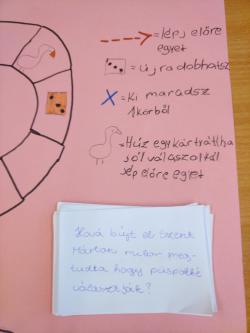 =lépj előre
egyet
=újradobhatsz
=Ki maradsz
1körből
=Húz egy kártyát ha
jól válaszoltál
lép előre egyet
Hová bújt el Szent
Márton mikor meg-
tudta hogy püspökké
választják?